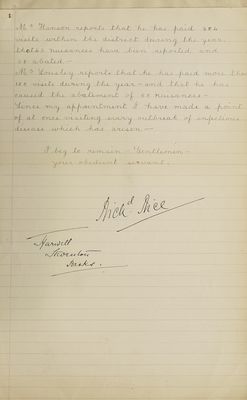 Mr Hanson reports that he has paid 284
visits within the district during the year.
that 65 nuisances have been reported and
58 abated —
Mr Lousley reports that he has paid more than
100 visits during the year — and that he has
caused the abatement of 20 nuisances —
Since my appointment I have made a point
of at once visiting every outbreak of infectious
disease which has arisen —
I beg to remain Gentlemen —
your obedient servant.
Rickd Rice
Harwell
Steventon
Berks.